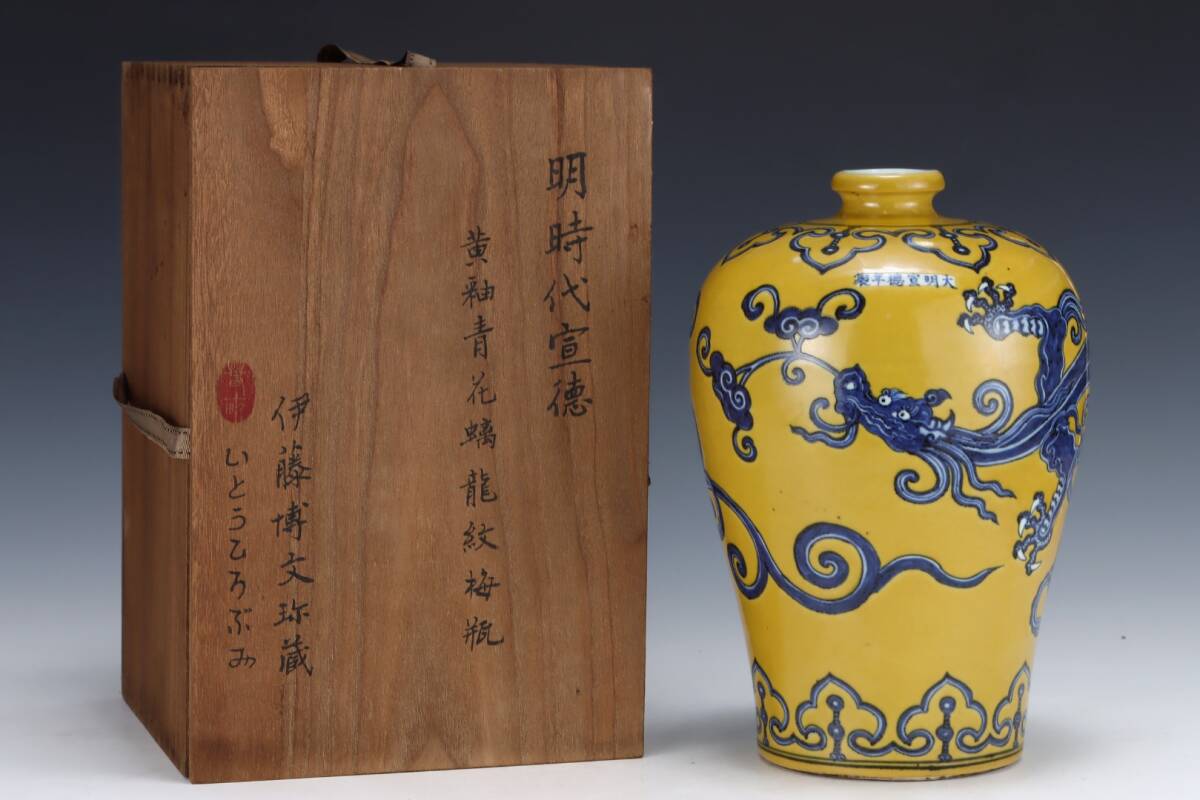 明時代宣徳
黄釉青花螭龍紋梅瓶
伊藤博文珎蔵
いとうひろぶみ
大明宣德年製